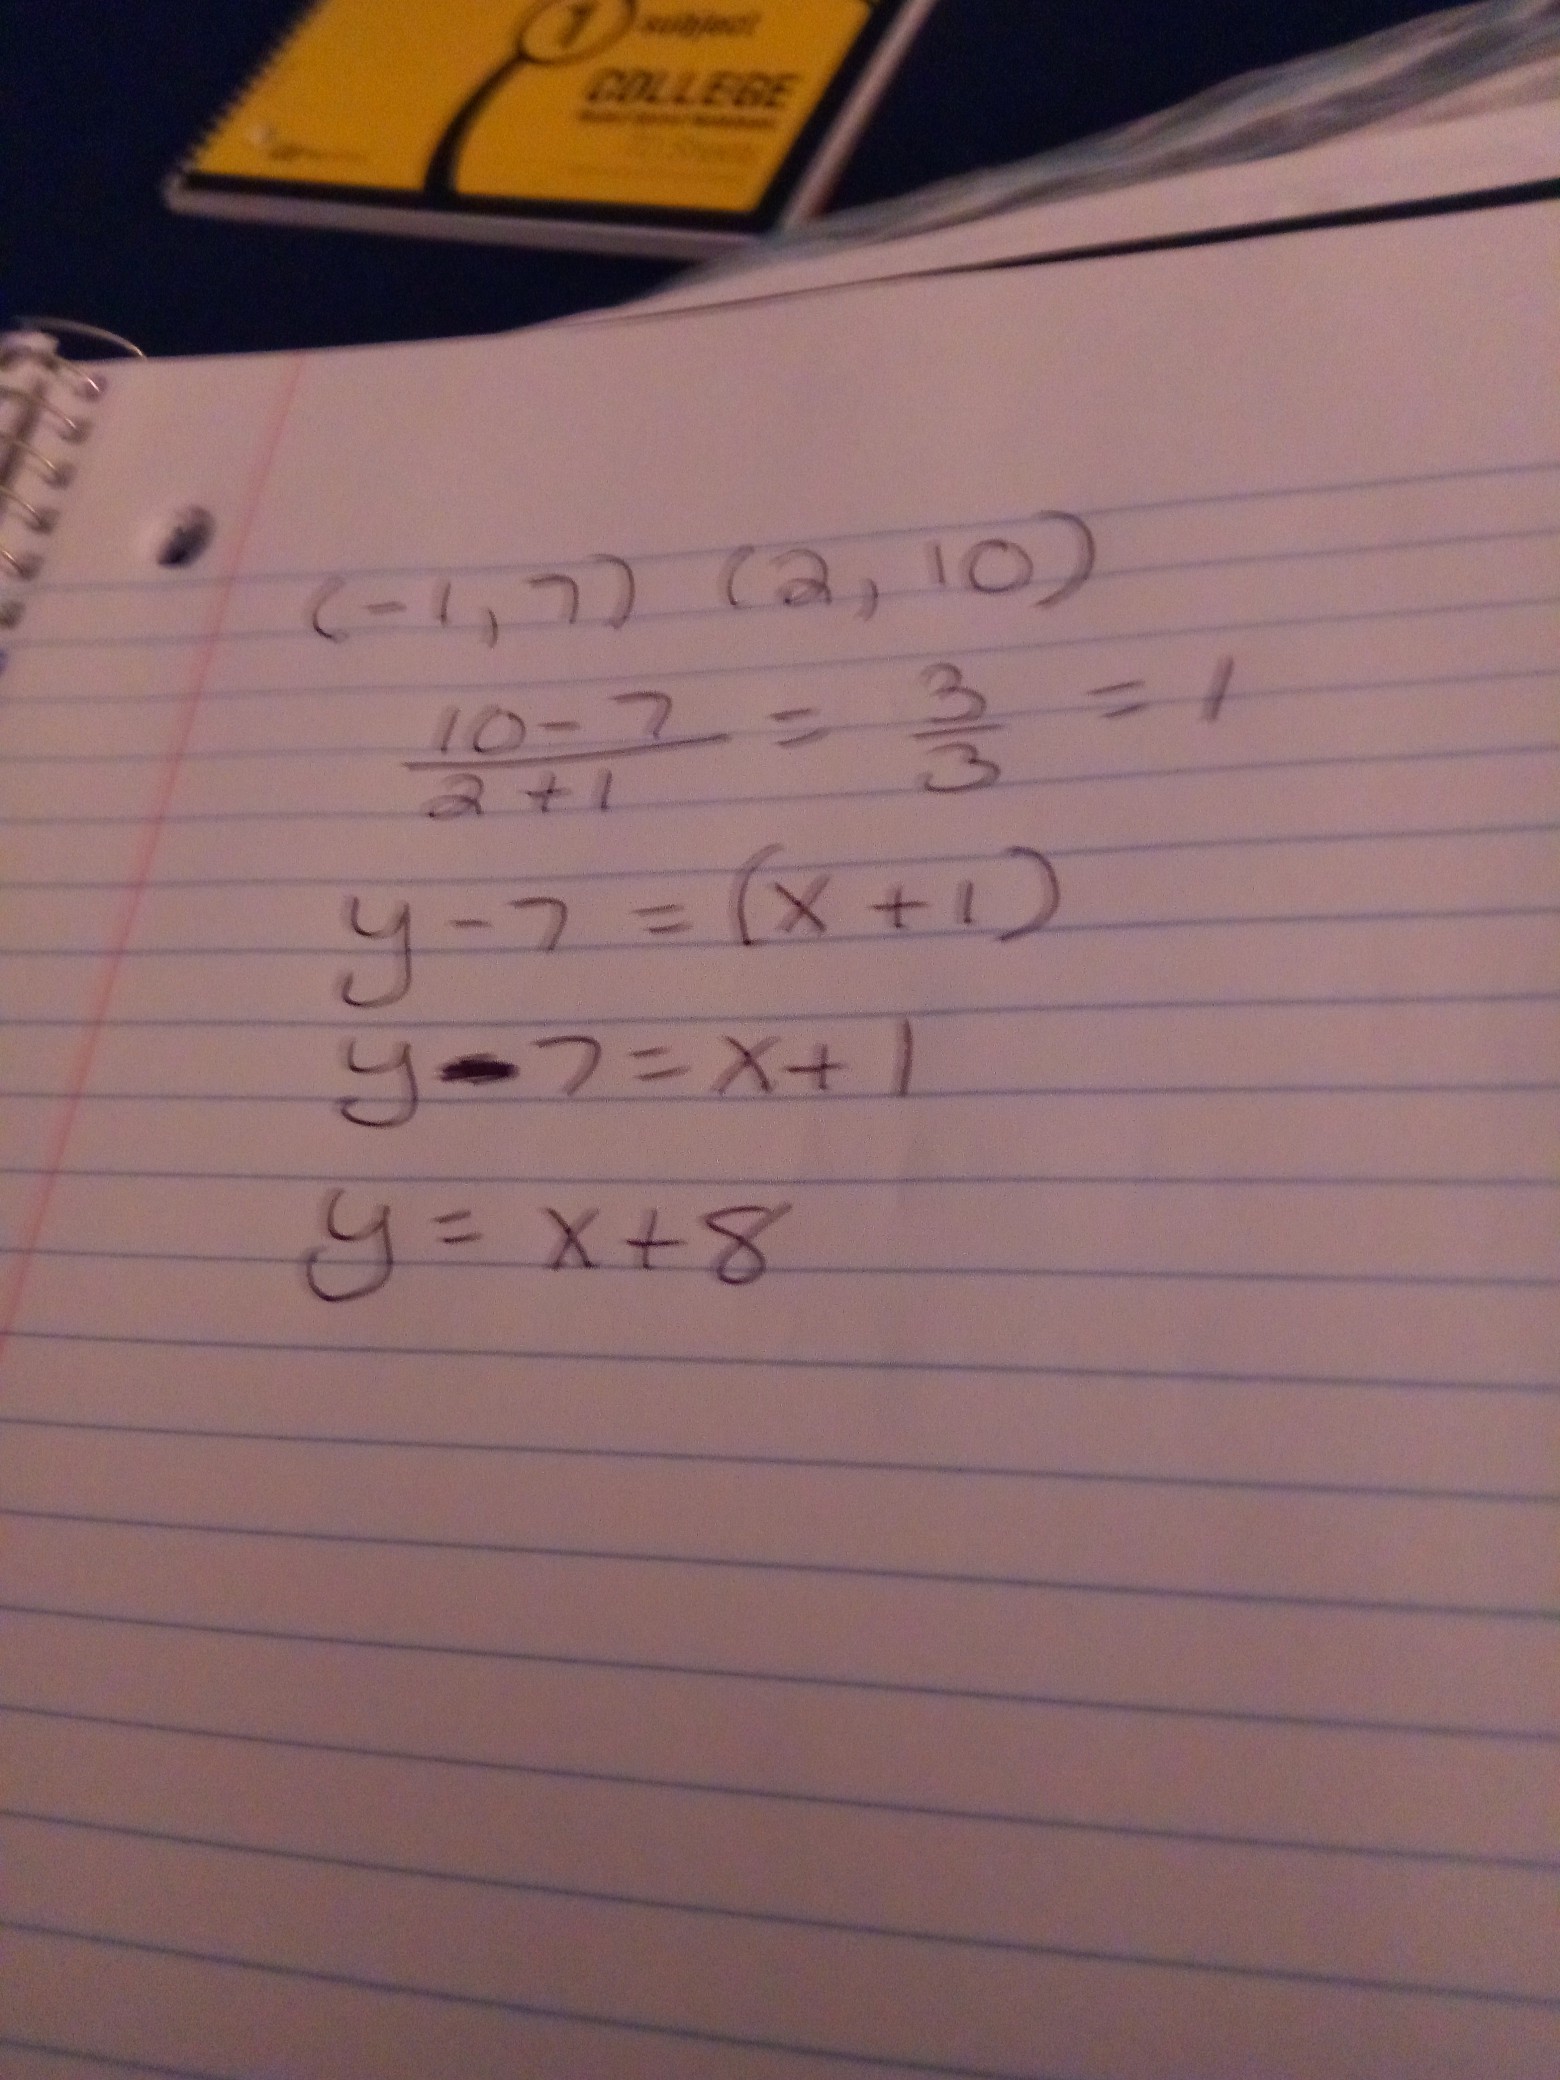 1 subject
COLLEGE
(-1, 7) (2, 10)
10-7 = 3 = 1
2+1 3
y-7 = (x+1)
y-7=x+1
y = x+8